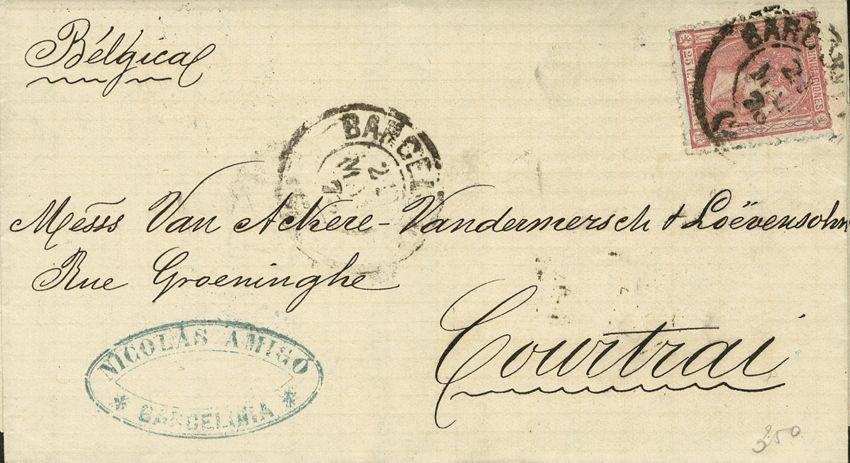 Bélgica
25
BARC
BARCEL
Messs Van Ackere-Vandermersch & Loëvensohn
Rue Groeninghe
Courtrai
NICOLÁS AMIGO
* BARCELONA *
350